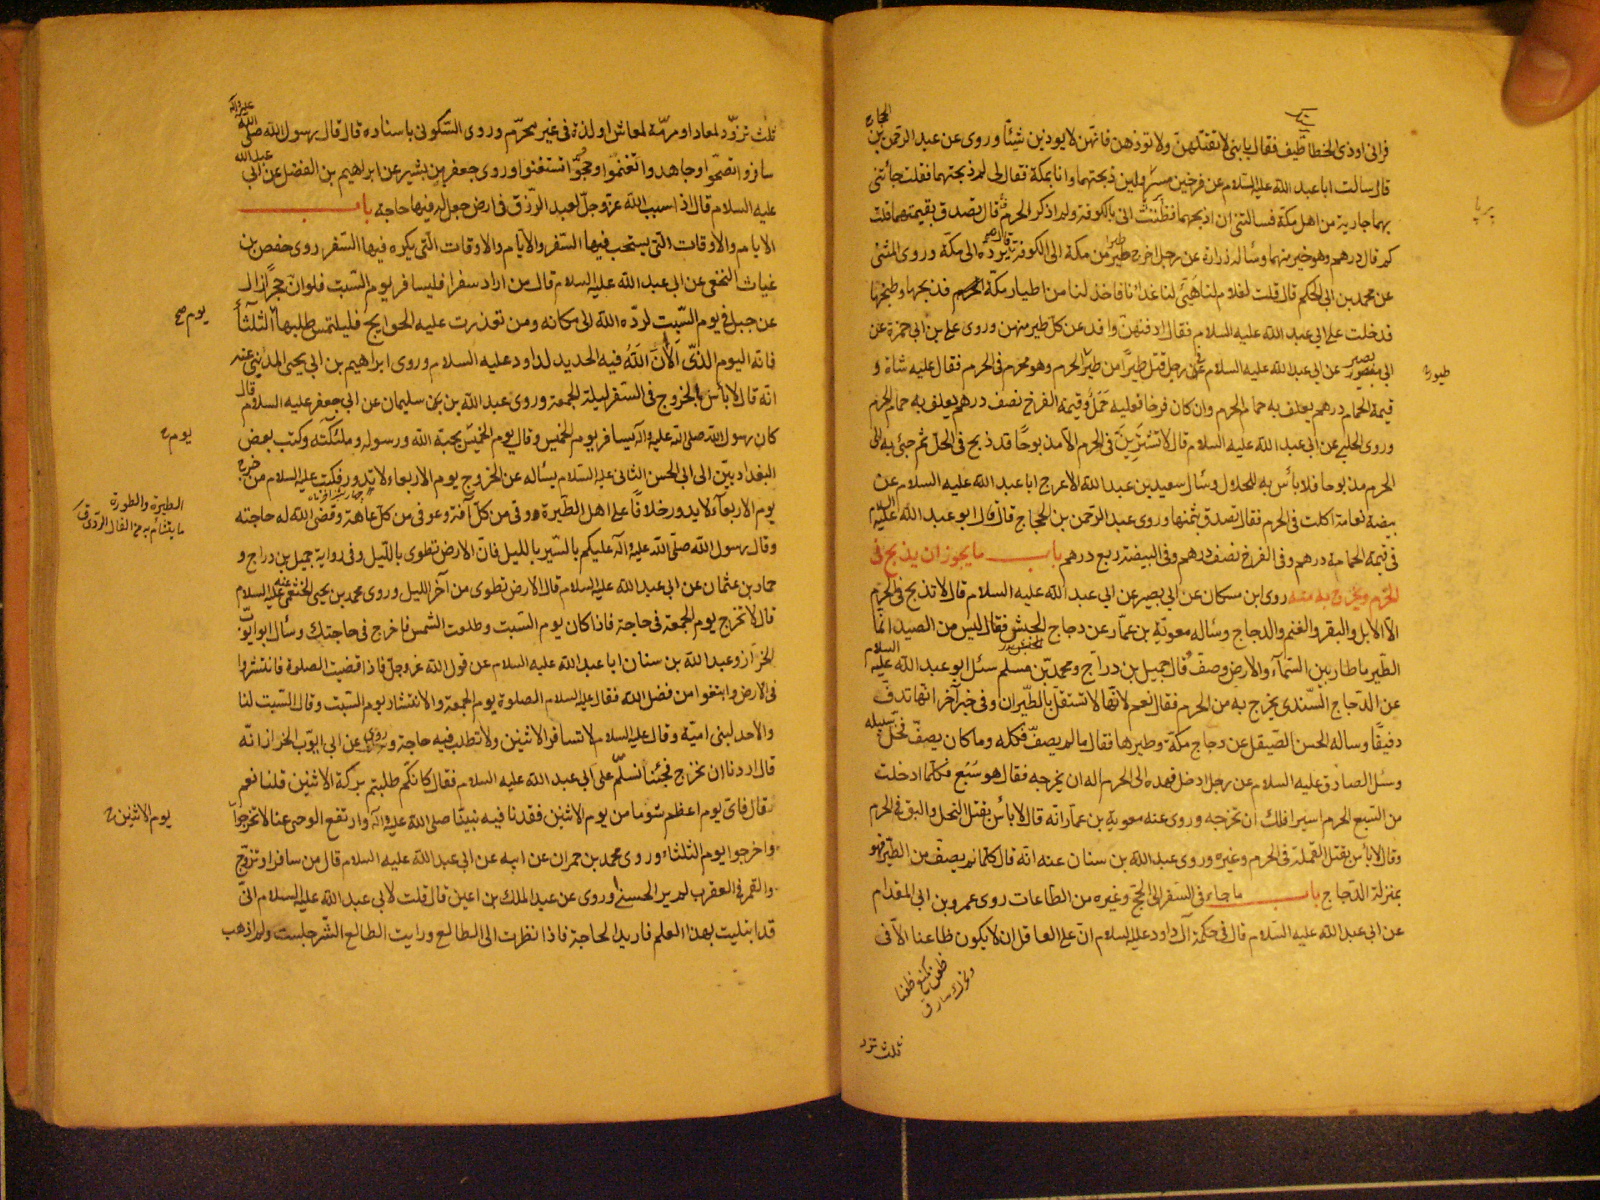 فرانى اوذى الخطاطيف فقال يا بنى لا تقتلهن ولا توذهن فانهن لا يوذين شيئا وروى عن عبد الرحمن بن الحجاج
قال سالت ابا عبد الله عليه السلام عن فرخين مسرولين ذبحتهما وانا بمكة فقال لى لم ذبحتهما فقلت جائتنى
بهما جارية من اهل مكة فسالتنى ان اذبحهما فظننت انى بالكوفة ولم اذكر الحرم قال تصدق بقيمتهما قلت
كم قال درهم وهو خير منهما وساله زرارة عن رجل اخرج طيرا من مكة الى الكوفة قال يرده الى مكة وروى المثنى
عن محمد بن ابى الحكم قال قلت لغلام لنا هيئ لنا غدانا فاخذ لنا من اطيار مكة فذبحها وطبخها
فدخلت على ابى عبد الله عليه السلام فقال ادفنهن وافد عن كل طير منهن وروى على بن ابى حمزة عن
ابى بصير عن ابى عبد الله عليه السلام عن رجل قتل طيرا من طير الحرم وهو محرم فى الحرم فقال عليه شاة و
قيمة الحمام درهم يعلف به حمام الحرم وان كان فرخا فعليه حمل وقيمة الفرخ نصف درهم يعلف به حمام الحرم
وروى الحلبى عن ابى عبد الله عليه السلام قال لا تشترين فى الحرم الا مذبوحا قد ذبح فى الحل ثم جئ به الى
الحرم مذبوحا فلا باس به للحلال وسال سعيد بن عبد الله الاعرج ابا عبد الله عليه السلام عن
بيضة نعامة اكلت فى الحرم فقال تصدق بثمنها وروى عبد الرحمن بن الحجاج قال قال ابو عبد الله عليه السلام
فى قيمة الحمامة درهم وفى الفرخ نصف درهم وفى البيضة ربع درهم باب ما يجوز ان يذبح فى
الحرم ويخرج به منه روى ابن مسكان عن ابى بصير عن ابى عبد الله عليه السلام قال لا تذبح فى الحرم
الا الابل والبقر والغنم والدجاج وساله معوية بن عمار عن دجاج الحبش فقال ليس من الصيد انما
الطير ما طار بين السماء والارض وصف وقال جميل بن دراج ومحمد بن مسلم سئل ابو عبد الله عليه السلام
عن الدجاج السندى يخرج به من الحرم فقال نعم لانها لا تستقل بالطيران وفى خبر آخر انها تدف
دفيفا وساله الحسن الصيقل عن دجاج مكة وطيرها فقال ما لم يصف فكله وما كان يصف فخل سبيله
وسئل الصادق عليه السلام عن رجل ادخل فهده الى الحرم اله ان يخرجه فقال هو سبع فكلما ادخلت
من السبع الحرم اسيرا فلك ان تخرجه وروى عنه معوية بن عمار انه قال لا باس بقتل النحل والبق فى الحرم
وقال لا باس بقتل القملة فى الحرم وغيره وروى عبد الله بن سنان عنه انه قال كلما لم يصف من الطير فهو
بمنزلة الدجاج باب ما جاء فى السفر الى الحج وغيره من الطاعات روى عمرو بن ابى المقدام
عن ابى عبد الله عليه السلام قال فى حكمة آل داود عليه السلام ان على العاقل ان لا يكون ظاعنا الا فى
ثلث تزو
ثلث تزود لمعاد او مرمة لمعاش او لذة فى غير محرم وروى السكونى باسناده قال قال رسول الله صلى الله عليه وآله
سافروا تصحوا وجاهدوا تغنموا وحجوا تستغنوا وروى جعفر بن بشير عن ابراهيم بن الفضل عن ابى عبد الله
عليه السلام قال اذا سبب الله عز وجل لعبد الرزق فى ارض جعل له فيها حاجة باب
الايام والاوقات التى يستحب فيها السفر والايام والاوقات التى يكره فيها السفر روى حفص بن
غياث النخعى عن ابى عبد الله عليه السلام قال من اراد سفرا فليسافر يوم السبت فلو ان حجرا زال
عن جبل فى يوم السبت لرده الله الى مكانه ومن تعذرت عليه الحوايج فليلتمس طلبها الثلثا
يوم صح
فانه اليوم الذى الان الله فيه الحديد لداود عليه السلام وروى ابراهيم بن ابى يحيى المدينى عنه
انه قال لا باس بالخروج فى السفر ليلة الجمعة وروى عبد الله بن سليمان عن ابى جعفر عليه السلام قال
كان رسول الله صلى الله عليه وآله يسافر يوم الخميس وقال يوم الخميس يحبه الله ورسوله وملئكته وكتب بعض
البغداديين الى ابى الحسن الثانى عليه السلام يساله عن الخروج يوم الاربعاء لا يدور فكتب عليه السلام من خرج
يوم الاربعاء لا يدور خلافا على اهل الطيرة وقى من كل آفة وعوفى من كل عاهة وقضى الله له حاجته
الطيرة والطورة
ما يتشائم به من الفال الردى ق
وقال رسول الله صلى الله عليه وآله عليكم بالسير بالليل فان الارض تطوى بالليل وفى رواية جميل بن دراج و
حماد بن عثمان عن ابى عبد الله عليه السلام قال الارض تطوى من آخر الليل وروى محمد بن يحيى الخثعمى عنه عليه السلام
قال لا تخرج يوم الجمعة فى حاجة فاذا كان يوم السبت وطلعت الشمس فاخرج فى حاجتك وسال ابو ايوب
الخزاز وعبد الله بن سنان ابا عبد الله عليه السلام عن قول الله عز وجل فاذا قضيت الصلوة فانتشروا
فى الارض وابتغوا من فضل الله فقال عليه السلام الصلوة يوم الجمعة والانتشار يوم السبت وقال السبت لنا
والاحد لبنى امية وقال عليه السلام لا تسافر الاثنين ولا تطلب فيه حاجة وروى عن ابى ايوب الخزاز انه
قال اردنا ان نخرج فجئنا نسلم على ابى عبد الله عليه السلام فقال كانكم طلبتم بركة الاثنين قلنا نعم
قال فاى يوم اعظم شوما من يوم الاثنين فقدنا فيه نبينا صلى الله عليه وآله وارتفع الوحى عنا لا تخرجوا
يوم الاثنين
واخرجوا يوم الثلثاء وروى محمد بن حمران عن ابيه عن ابى عبد الله عليه السلام قال من سافر او تزوج
والقمر فى العقرب لم ير الحسنى وروى عن عبد الملك بن اعين قال قلت لابى عبد الله عليه السلام انى
قد ابتليت بهذا العلم فاريد الحاجة فاذا نظرت الى الطالع ورايت الطالع الشر جلست ولم اذهب